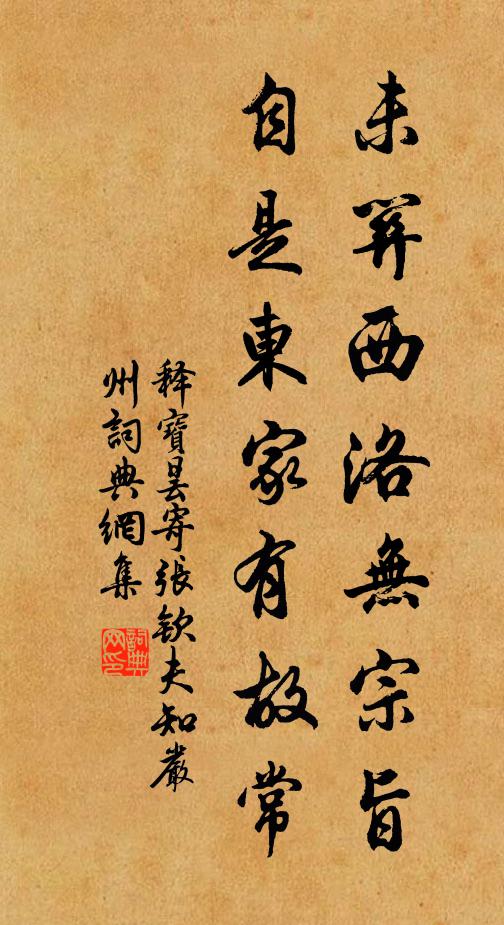 未羿西洛無宗旨
自是東家有故常
释寶曇寄張欽夫知嚴
州詞典網集
詞典网印